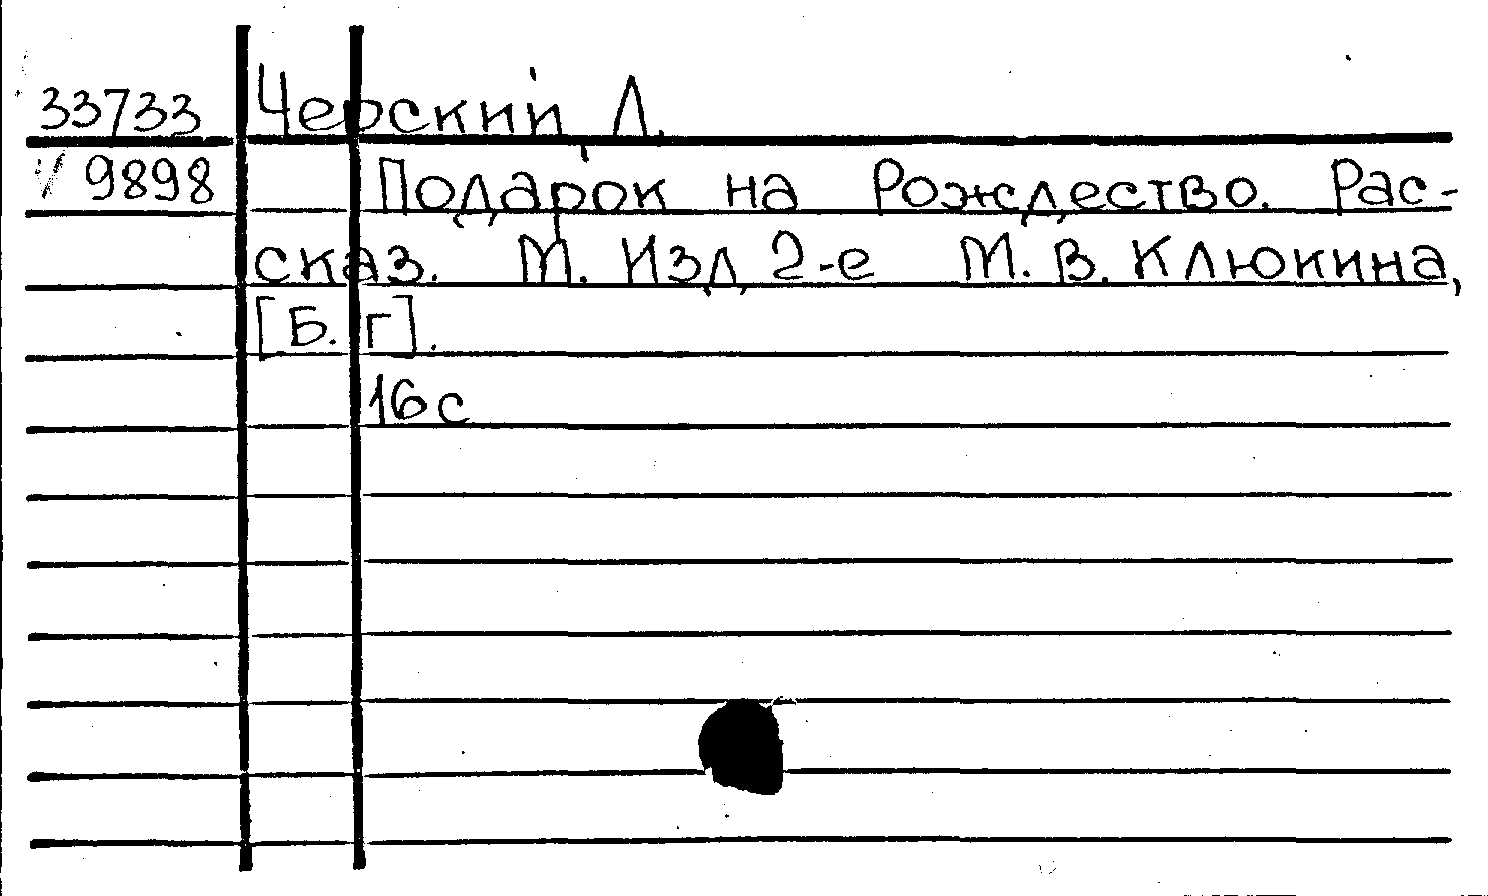 33733 Черский, Л.
V 9898 Подарок на Рождество. Рас-
сказ. М. Изд. 2-е М. В. Клюкина,
[Б. г].
16 с